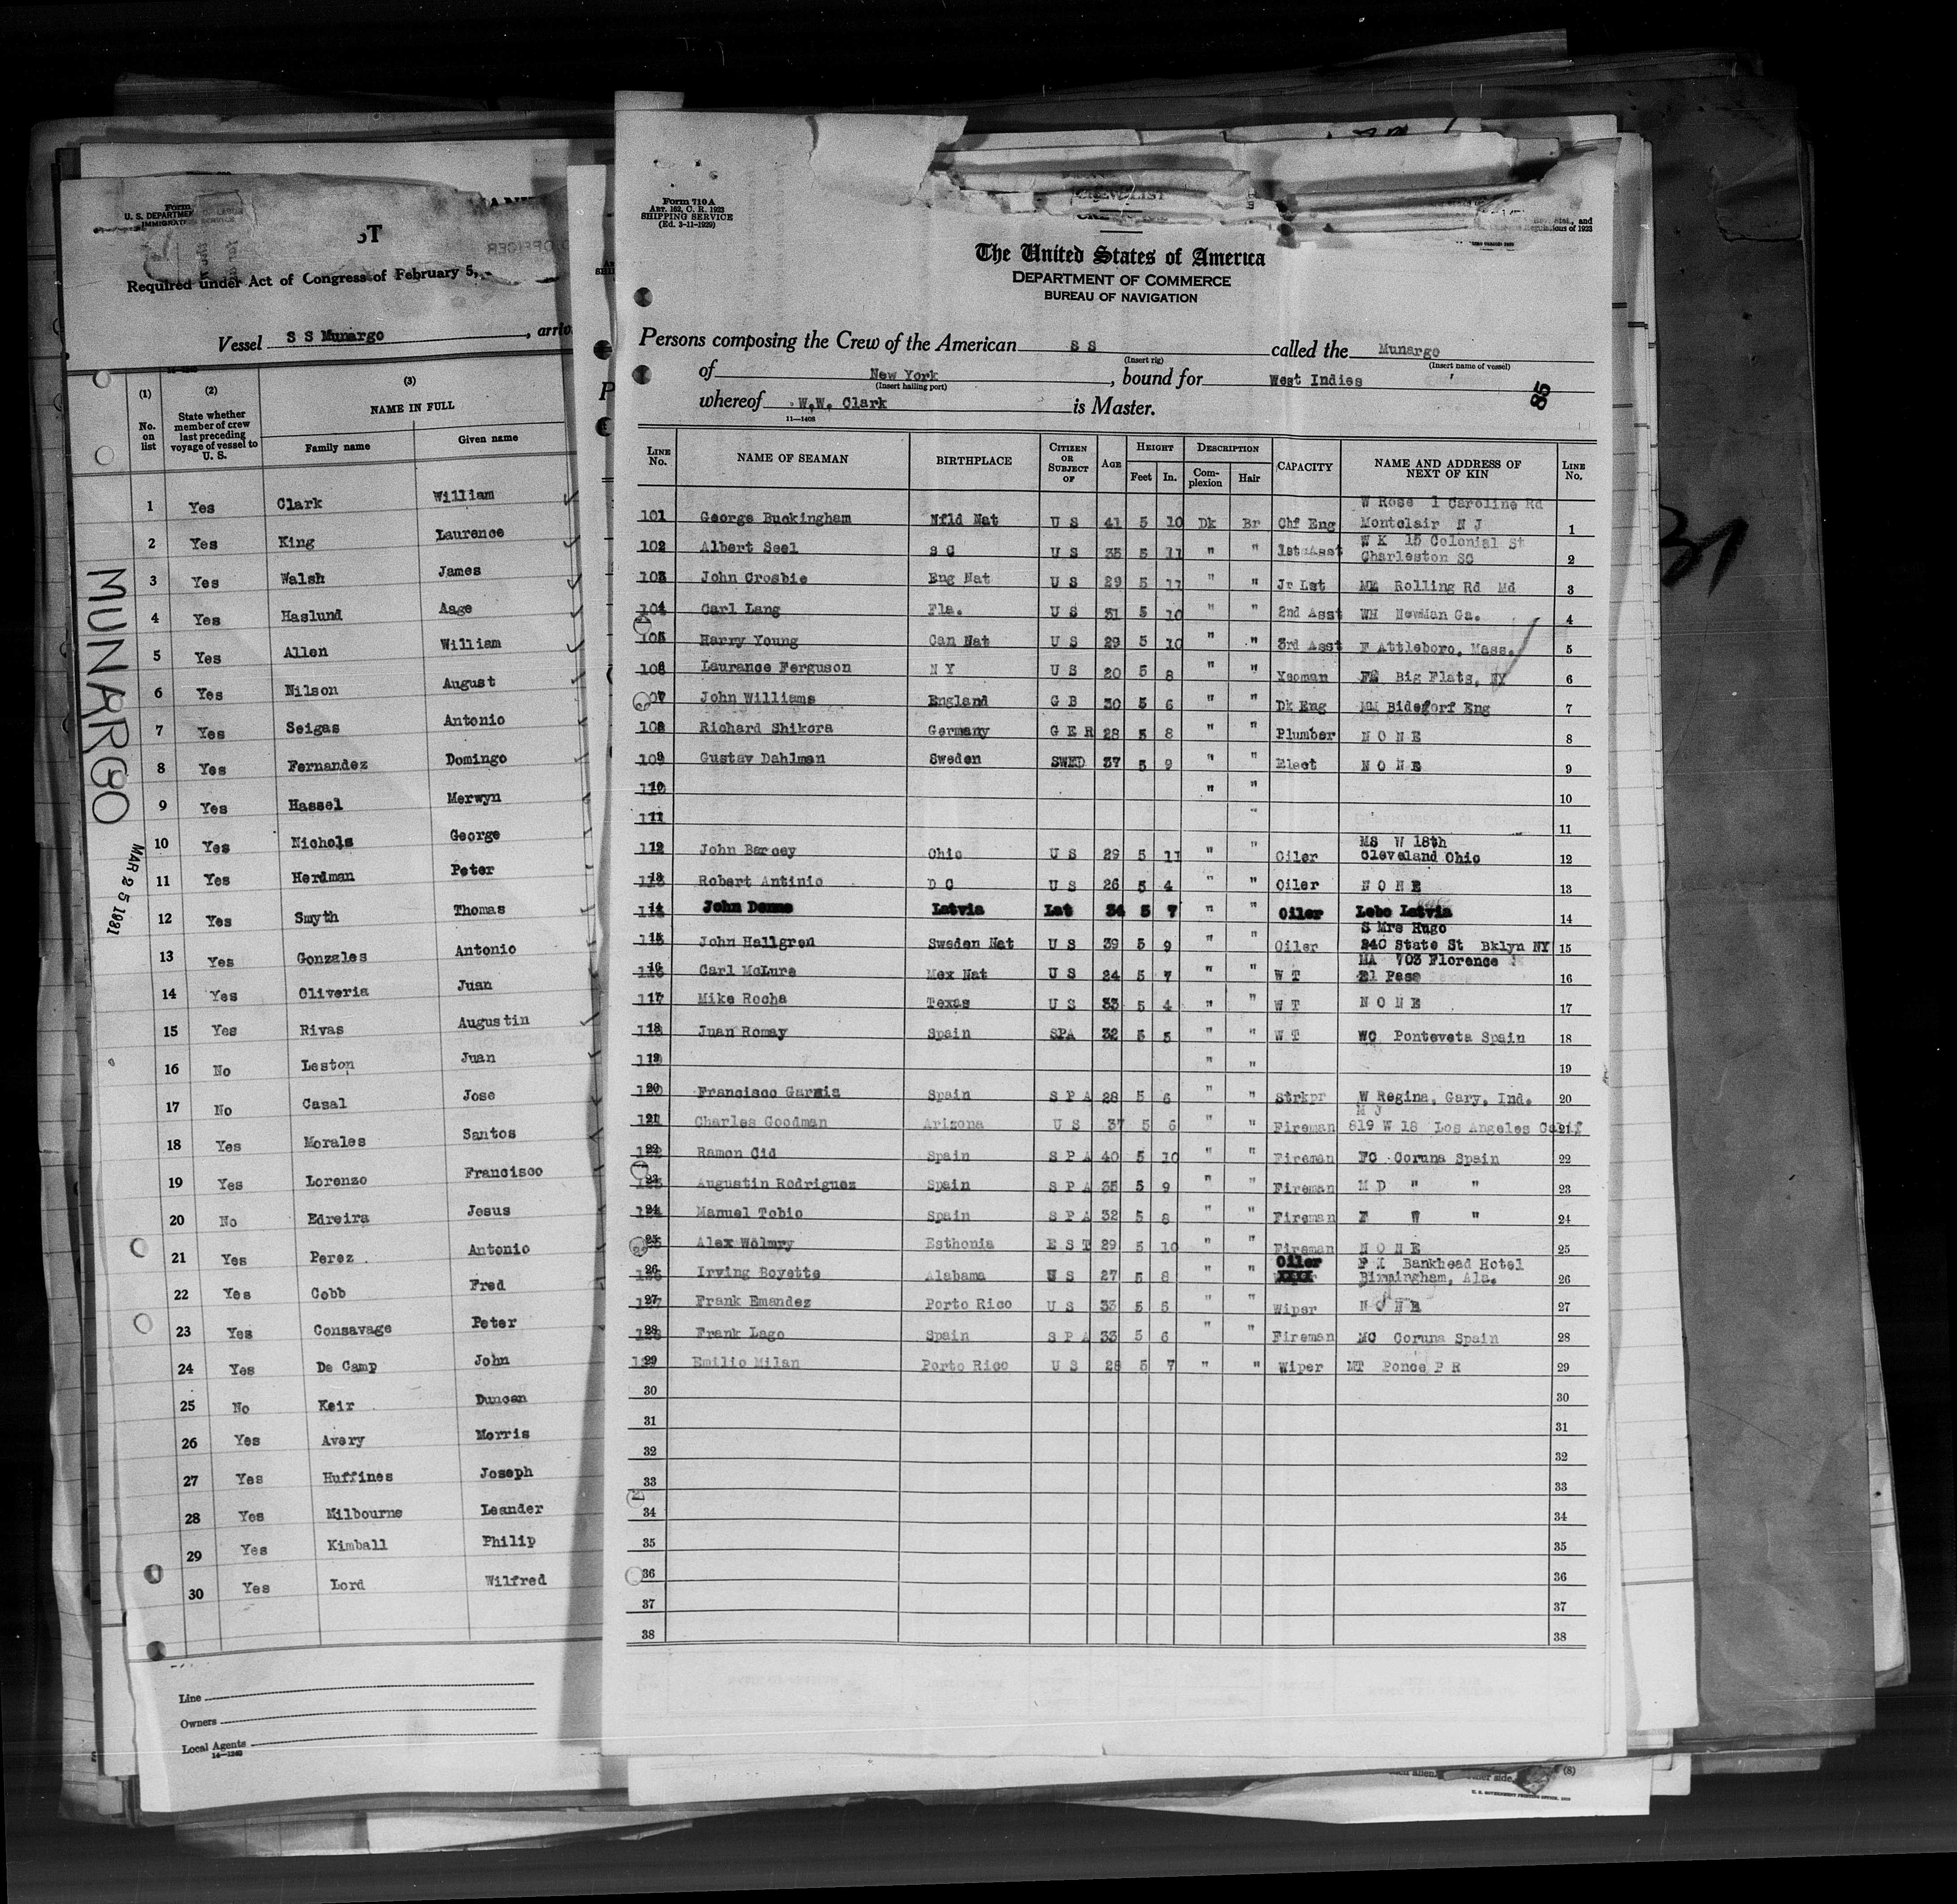 Form
U. S. DEPARTMENT
IMMIGRATION SERVICE
ST
Required under Act of Congress of February 5,
Vessel S S Munargo, arriv
(1) (2) (3)
No. on list
State whether member of crew last preceding voyage of vessel to U. S.
NAME IN FULL
Family name Given name
1 Yes Clark William
2 Yes King Laurence
3 Yes Walsh James
4 Yes Haslund Aage
5 Yes Allen William
6 Yes Nilson August
7 Yes Seigas Antonio
8 Yes Fernandez Domingo
9 Yes Hassel Merwyn
10 Yes Nichols George
11 Yes Herdman Peter
12 Yes Smyth Thomas
13 Yes Gonzales Antonio
14 Yes Oliveria Juan
15 Yes Rivas Augustin
16 No Leston Juan
17 No Casal Jose
18 Yes Morales Santos
19 Yes Lorenzo Francisco
20 No Edreira Jesus
21 Yes Perez Antonio
22 Yes Cobb Fred
23 Yes Consavage Peter
24 Yes De Camp John
25 No Keir Duncan
26 Yes Avery Morris
27 Yes Huffines Joseph
28 Yes Milbourne Leander
29 Yes Kimball Philip
30 Yes Lord Wilfred
Line
Owners
Local Agents
14—1240
MUNARGO
MAR 25 1931
Form 710 A
Art. 162, C. R. 1923
SHIPPING SERVICE
(Ed. 3-11-1929)
CREW LIST
Stat., and
Regulations of 1923
The United States of America
DEPARTMENT OF COMMERCE
BUREAU OF NAVIGATION
Persons composing the Crew of the American S S called the Munargo
(Insert rig) (Insert name of vessel)
of New York, bound for West Indies
(Insert hailing port)
85
whereof W.W. Clark is Master.
11—1408
LINE No. NAME OF SEAMAN BIRTHPLACE CITIZEN OR SUBJECT OF AGE HEIGHT Feet In. DESCRIPTION Complexion Hair CAPACITY NAME AND ADDRESS OF NEXT OF KIN LINE No.
W Rose 1 Caroline Rd
101 George Buckingham Nfld Nat U S 41 5 10 Dk Br Chf Eng Montclair N J 1
W K 15 Colonial St
102 Albert Seel S C U S 35 5 11 " " 1st Asst Charleston SC 2
103 John Crosbie Eng Nat U S 29 5 11 " " Jr 1st ME Rolling Rd Md 3
104 Carl Lang Fla. U S 31 5 10 " " 2nd Asst WH Newman Ga. 4
105 Harry Young Can Nat U S 29 5 10 " " 3rd Asst F Attleboro, Mass. 5
106 Laurance Ferguson N Y U S 20 5 8 " " Yeoman FE Big Flats, NY 6
107 John Williams England G B 30 5 6 " " Dk Eng MM Bideforf Eng 7
108 Richard Shikora Germany G E R 28 5 8 " " Plumber N O N E 8
109 Gustav Dahlman Sweden SWED 37 5 9 " " Elect N O N E 9
110 " " 10
111 " 11
MS W 18th
112 John Barcey Ohio U S 29 5 11 " " Oiler Cleveland Ohio 12
113 Robert Antinio D C U S 26 5 4 " " Oiler N O N E 13
114 John Latvia Lat 34 5 7 " " Oiler Lebo Latvia 14
S Mrs Rugo
115 John Hallgren Sweden Nat U S 39 5 9 " " Oiler 240 State St Bklyn NY 15
MA 703 Florence
116 Carl McLure Mex Nat U S 24 5 7 " " W T El Paso 16
117 Mike Rocha Texas U S 33 5 4 " " W T N O N E 17
118 Juan Romay Spain SPA 32 5 5 " " W T WC Ponteveta Spain 18
119 " " 19
120 Francisco Garmia Spain S P A 28 5 6 " " Strkpr W Regina, Gary, Ind. 20
M J
121 Charles Goodman Arizona U S 37 5 6 " " Fireman 819 W 18 Los Angeles Calif 21
122 Ramon Cid Spain S P A 40 5 10 " " Fireman FC Coruna Spain 22
123 Augustin Rodriguez Spain S P A 35 5 9 " " Fireman M D " " 23
124 Manuel Tobio Spain S P A 32 5 8 " " Fireman F W " 24
125 Alex Wolmry Esthonia E S T 29 5 10 " " Fireman N O N E 25
Oiler F I Bankhead Hotel
126 Irving Boyette Alabama U S 27 5 8 " " Birmingham, Ala. 26
127 Frank Emandez Porto Rico U S 33 5 5 " " Wiper N O N E 27
128 Frank Lago Spain S P A 33 5 6 " " Fireman MC Coruna Spain 28
129 Emilio Milan Porto Rico U S 28 5 7 " " Wiper MT Ponce P R 29
30 30
31 31
32 32
33 33
34 34
35 35
36 36
37 37
38 38
(8)
U. S. GOVERNMENT PRINTING OFFICE